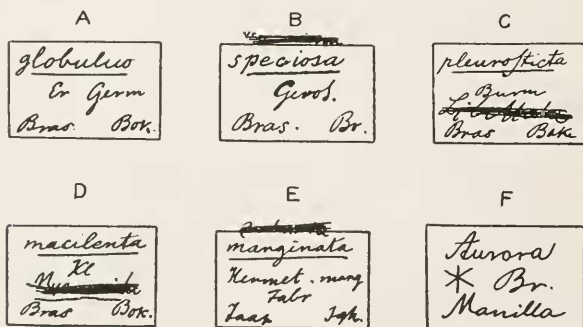 A
globulus
Er Germ
Bras. Bok.
B
speciosa
Gerst.
Bras. Br.
C
pleurosticta
Burm
Bras Bake
D
macilenta
Kl
Bras Bok.
E
marginata
Hermet. marg
Fabr
F
Aurora
* Br.
Manilla